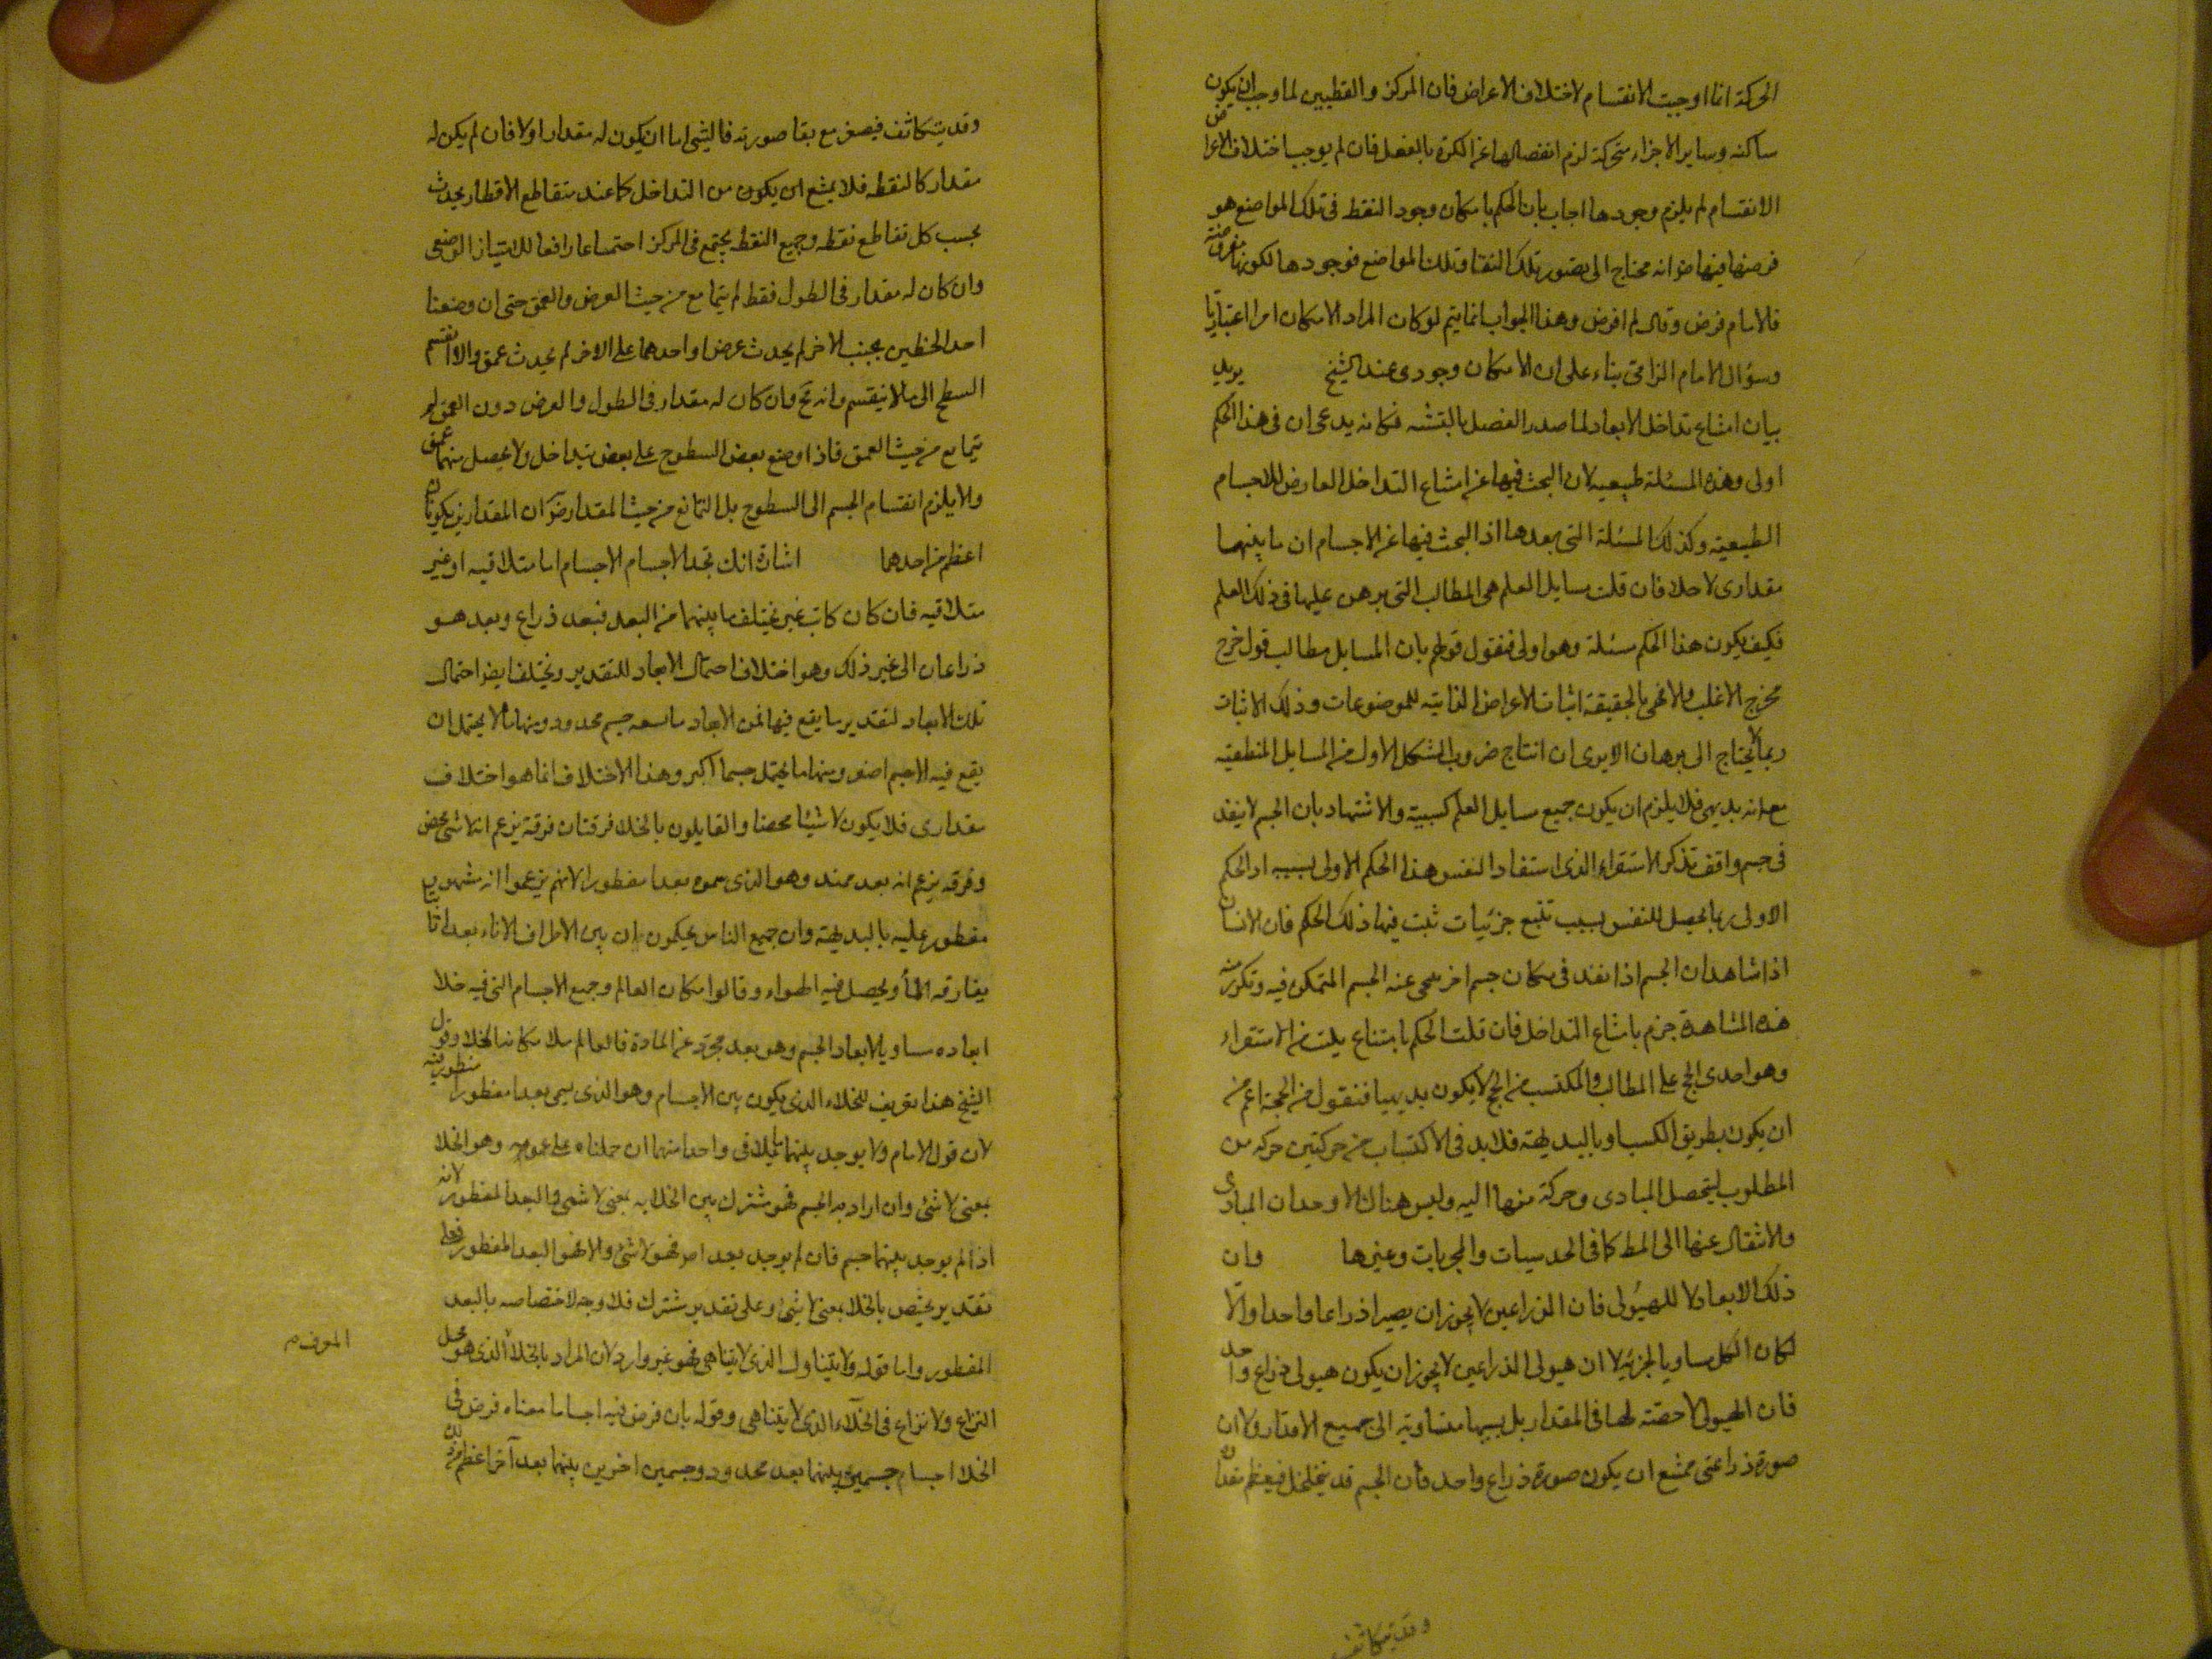 الحركة انما اوجبت الانقسام لاختلاف الاعراض فان المركز والقطبين لما وجب ان يكون
ساكنه وساير الاجزاء متحركة لزم انفصالها عن الكرة بالفعل فان لم يوجب اختلاف الاعراض
الانقسام لم يلزم وجودها اجاب بان الحكم بامكان وجود النقط فى تلك المواضع هو
فرضها فيها ضرانه محتاج الى تصور تلك النقط وتلك المواضع فوجودها لكونها
فالامام فرض وقال لم افرض وهذا الجواب انما يتم لو كان المراد الامكان امرا اعتباريا
وسؤال الامام الزامى بناء على ان الامكان وجودى عند الشيخ يريد
بيان امتناع تداخل الابعاد لما صدر الفصل بالتنبيه فكانه يدعى ان فى هذا الحكم
اولى وهذه المسئلة طبيعيه لان البحث فيها عن امتناع التداخل العارض للاجسام
الطبيعية وكذلك المسئلة التى بعدها اذ البحث فيها عن الاجسام ان ما بينهما
مقدارى لا خلا فان قلت مسايل العلم هى المطالب التى برهن عليها فى ذلك العلم
فكيف يكون هذا الحكم مسئلة وهو اولى فنقول قولهم بان المسايل مطالب قول خرج
مخرج الاغلب والا فهى بالحقيقة اثبات الاعراض الذاتيه للموضوعات وذلك الاثبات
ربما لا يحتاج الى برهان الا يرى ان انتاج ضروب الشكل الاول من المسايل المنطقية
مع انه بديهى فلا يلزم ان يكون جميع مسايل العلم كسبية والاشتهاد بان الجسم لا ينفذ
فى جسم واقف تذكر الاستقراء الذى استفاد النفس هذا الحكم الاولى بسببه اذ الحكم
الاولى ربما يحصل للنفس بسبب تتبع جزئيات ثبت فيها ذلك الحكم فان الانسان
اذا شاهد ان الجسم اذا نفذ فى مكان جسم اخر تنحى عنه الجسم المتمكن فيه وتكرر منه
هذه المشاهدة جزم بامتناع التداخل فان قلت الحكم بامتناع يثبت من الاستقراء
وهو احدى الحجج على المطالب والمكتسب من الحج لا يكون بديهيا فنقول من الحجة اعم من
ان يكون بطريق الكسب او بالبديهة فلابد فى الاكتساب من حركتين حركه من
المطلوب لتحصل المبادى وحركة منها اليه وليس هناك الا وحدان المبادى
والانتقال عنها الى المط كما فى الحدسيات والمجربات وغيرها وان
ذلك الابعاد لا للهيولى فان الذراعين لا يجوز ان يصيرا ذراعا واحدا والا
لكان الكل مساويا لجزئه لا ان هيولى الذراعين لا يجوز ان يكون هيولى ذراع واحد
فان الهيولى لا حصة لها فى المقدار بل نسبتها متساوية الى جميع الاقدار ولا ان
صورة ذراعى ممتنع ان يكون صورة ذراع واحد فان الجسم قد يتخلخل فيعظم مقداره
وقد يتكاثف
وقد يتكاثف فيصغر مع بقا صورته فالشئ اما ان يكون له مقدار اولا فان لم يكن له
مقدار كالنقطه فلا يمتنع ان يكون من التداخل كما عند تقاطع الاقطار يحدث
بحسب كل تقاطع نقطه وجميع النقط يجتمع فى المركز اجتماعا رافعا للامتياز الوضعى
وان كان له مقدار فى الطول فقط لم يتمانع من حيث العرض والعمق حتى ان وضعنا
احد الخطين بجنب الاخر لم يحدث عرض او احدهما على الاخر لم يحدث عمق والا انقسم
السطح الى ما لا ينقسم وانه مح وان كان له مقدار فى الطول والعرض دون العمق لم
يتمانع من حيث العمق فاذا وضع بعض السطوح على بعض يتداخل ولا يحصل منهما عمق
ولا يلزم انقسام الجسم الى السطوح بل التمانع من حيث المقدار ضرو ان المقدارين يكونان
اعظم من احدهما اشارة انك تجد الاجسام الاجسام اما متلاقيه او غير
متلاقيه فان كان كانت غير يختلف ما بينهما من البعد فبعد ذراع وبعد هو
ذراعان الى غير ذلك وهو اختلاف احتمال الابعاد للتقدير ويختلف ايضا احتمال
تلك الابعاد لتقدير ما يقع فيها فمن الابعاد ما يسعه جسم محدود ومنها ما لا يحتمل ان
يقع فيه الا جسم اصغر ومنها ما يحتمل جسما اكبر وهذا الاختلاف انما هو اختلاف
مقدارى فلا يكون لا شيئا محضا والقايلون بالخلا فرقتان فرقة يزعم انه لا شئ محض
وفرقه يزعم انه بعد ممتد وهو الذى سموه بعدا مفطورا لانهم يزعموا انه مشهور
مفطور عليه بالبديهة وان جميع الناس يحكمون ان بين الاطراف الاناء بعدا ثابتا
يفارقه الماء ويحصل فيه الهواء وقالوا مكان العالم وجميع الاجسام التى فيه خلا
ابعاده مساويا لابعاد الجسم وهو بعد مجرد عن المادة فالعالم ملا مكانه الخلا وقول
الشيخ هذا تعريف للخلاء الذى يكون بين الاجسام وهو الذى يسمى بعدا مفطورا
لان قول الامام ولا يوجد بينهما ما يلاقى واحدا منهما ان حملناه على عمومه وهو الخلا
بمعنى لا شئ وان اراد به الجسم فهو مشترك بين الخلا به بمعنى لا شئ والبعد المفطور لانه
اذا لم يوجد بينهما جسم فان لم يوجد بعد اصلا فهو لا شئ والا فهو البعد المفطور فعلى
تقدير يختص بالخلا بمعنى لا شئ وعلى تقدير مشترك فلا وجه لاختصاصه بالبعد
المفطور واما قوله ولا يتناول الذى لا يتناهى فهو غير وارد لان المراد بالخلا الذى هو محل
النزاع ولا نزاع فى الخلاء الذى لا يتناهى وقوله بان فرض فيه اجساما معناه فرض فى
الخلا اجسام جسمين بينهما بعد محدود وجسمين اخرين بينهما بعد آخر اعظم منه